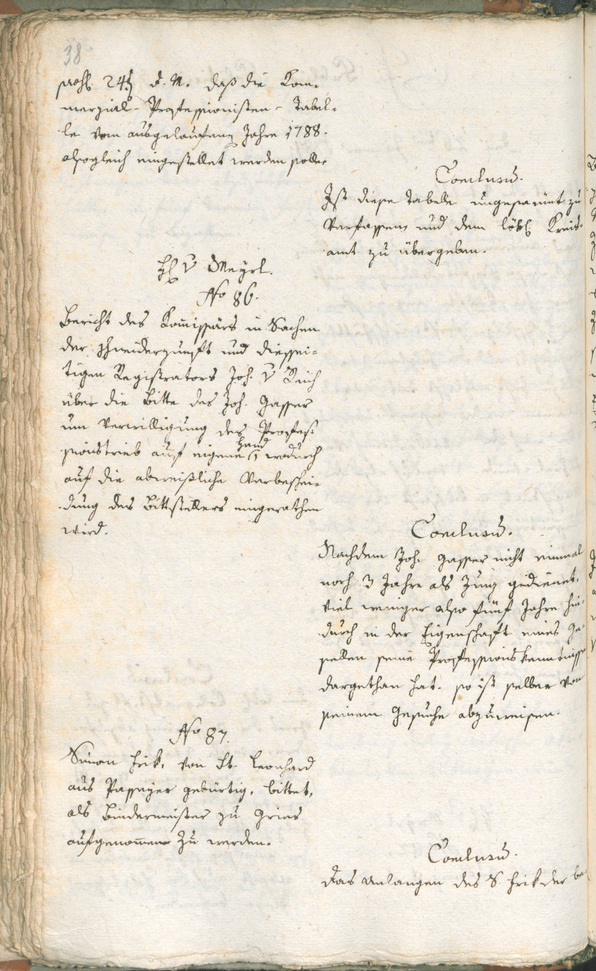 38
d. M. daß die Kom-
merzial-Professionisten-Tabel-
le vom ausgelaufenen Jahre 1788.
alsogleich eingestellet werden solle.
Conclusum.
Ist diese Tabelle ungesäumt zu
verfassen und dem löbl. Kreis-
amt zu übergeben.
H. v Mayrl.
No 86.
Bericht des Kommissärs in Sachen
der Schneiderzunft und diessei-
tigen Registrators Joh. v
über die Bitte des Joh. Gasser
um Verwilligung des Profes-
sionstrieb auf eigene Hand, wodurch
auf die abweisliche Verbeschei-
dung des Bittstellers eingerathen
wird.
Conclusum.
Nachdem Joh. Gasser nicht einmal
noch 3 Jahre als Jung gedienet,
viel weniger also fünf Jahre hin-
durch in der Eigenschaft eines Ge-
sellen seine Professionskenntnisse
dargethan hat. so ist selber von
seinem Gesuche abzuweisen.
No 87.
Simon Hrik, von St. Leonhard
aus Passeyer gebürtig, bittet,
als Bindermeister zu Gries
aufgenommen zu werden.
Conclusum.
Das Anlangen des S. Hrik der